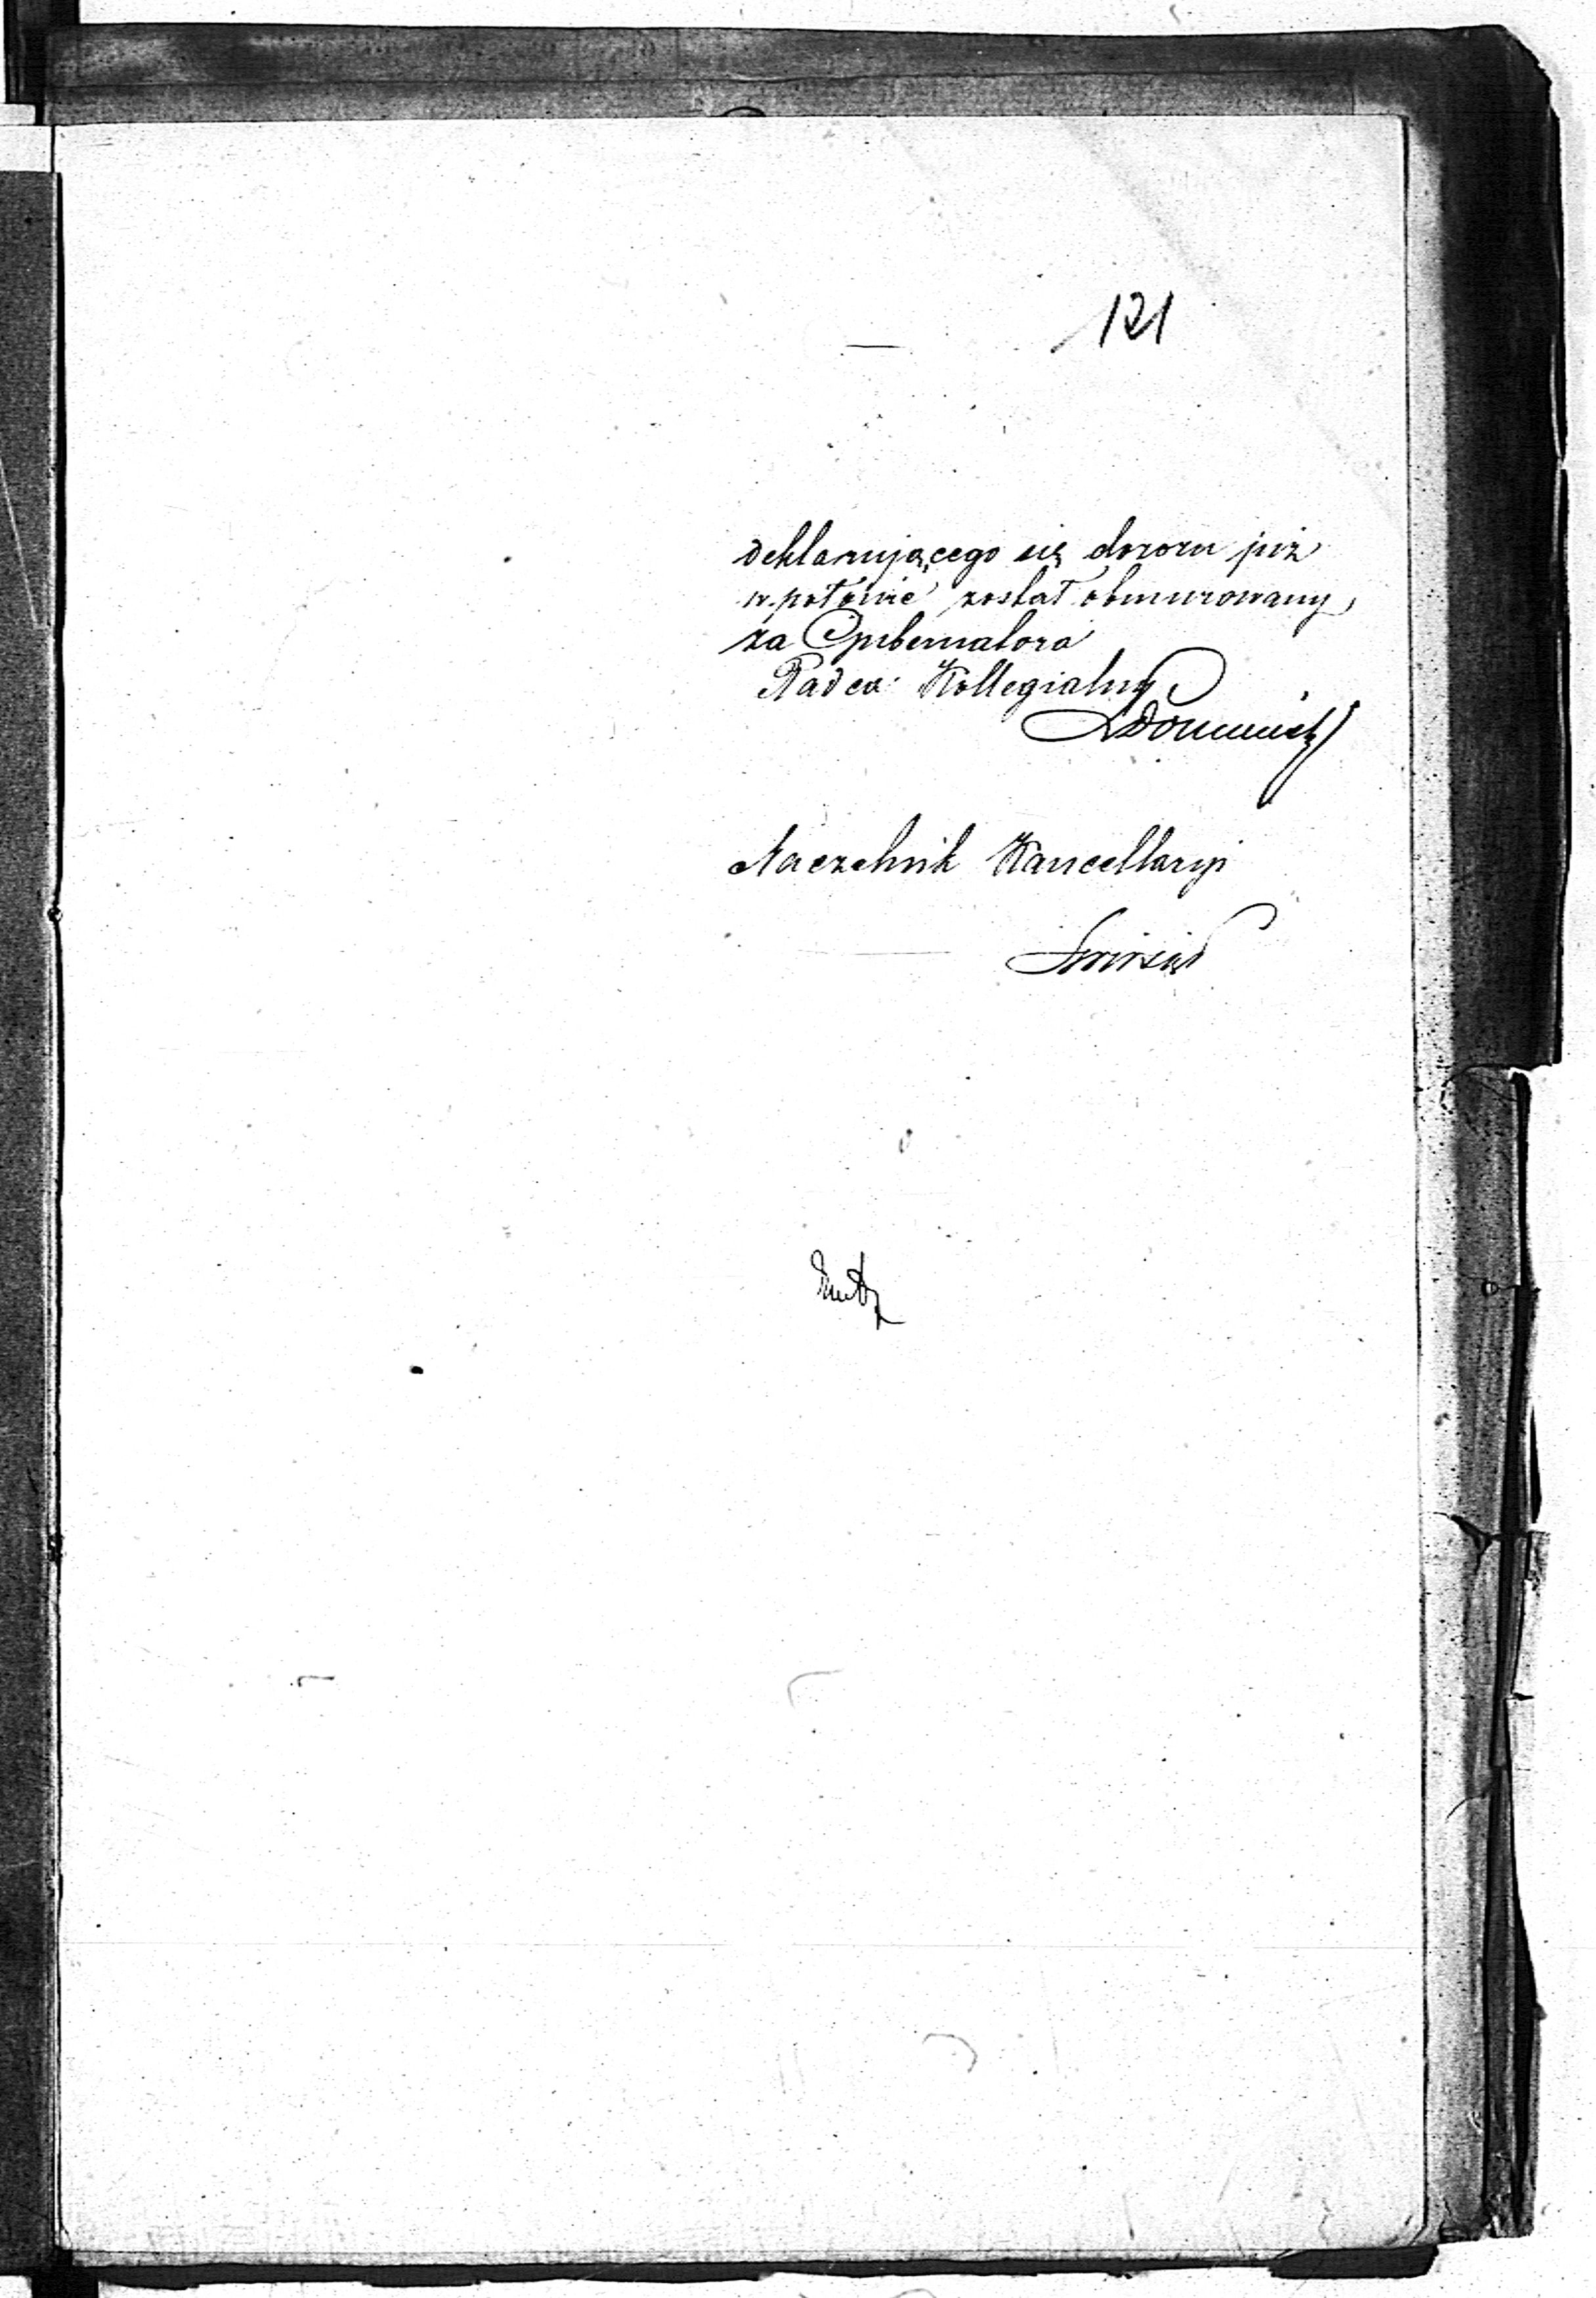 121
deklarującego się dozoru już
w połowie został obmurowany,
za Gubernatora
Radca Kollegialny
Naczelnik Kancellaryi